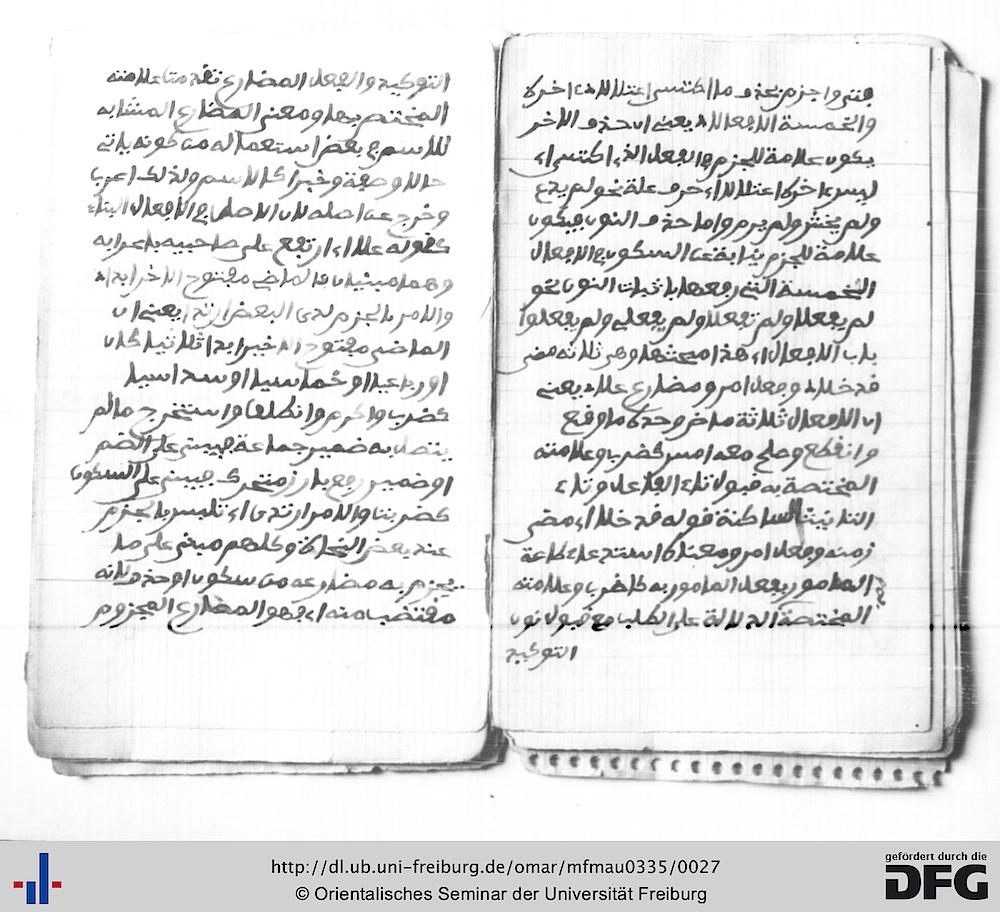 فترى واجزم بحذف ما اكتسى اعتلالا اخره
والخمسة الافعال لا يعني ان حذف الاخر
يكون علامة للجزم في الفعل الذي اكتسى اي
لبس اخره اعتلالا اي حرف علة نحو لم يدع
ولم يخش ولم يرم واما حذف النون فيكون
علامة للجزم نيابة عن السكون في الافعال
الخمسة التي رفعها باثبات النون نحو
لم يفعلا ولم تفعلا ولم يفعلوا
باب الافعال اي هذا مبحثها وهي ثلاثة مضى
قد خلا وفعل امر ومضارع علا يعني
ان الافعال ثلاثة ماض وحده ما وقع
وانقطع وصلح معه امس كضرب وعلامته
المختصة به قبول تاء الفاعل وتاء
التانيث الساكنة قوله قد خلا اي مضى
زمنه وفعل امر ومعناه استدعاء طاعة
المامور بفعل المامور به كاضرب وعلامته
المختصة الدلالة على الطلب مع قبول نون
التوكيد
التوكيد والفعل المضارع تقدمتا علامته
المختص بها ومعنى المضارع المشابه
للاسم في بعض استعماله من كونه ياتي
حالا وصفة وخبرا كالاسم ولذلك اعرب
وخرج عن اصله لان الاصل في الافعال البناء
كقوله علا اي ارتفع على صاحبيه باعرابه
وهما مبنيان فالماضي مفتوح الاخير ابدا
والامر بالجزم لدى البعض ارتدى يعني ان
الماضي مفتوح الاخير ابدا ثلاثيا كان
او رباعيا او خماسيا او سداسيا
كضرب واكرم وانطلق واستخرج ما لم
يتصل به ضمير جماعة فيبنى على الضم
او ضمير رفع بارز متحرك فيبنى على السكون
كضربنا والامر ارتدى اي تلبس بالجزم
عند بعض النحاة وكلهم مبني على ما
يجزم به مضارعه من سكون او حذف لانه
مقتضب منه اي فهو المضارع المجزوم
http://dl.ub.uni-freiburg.de/omar/mfmau0335/0027
© Orientalisches Seminar der Universität Freiburg
gefördert durch die
DFG